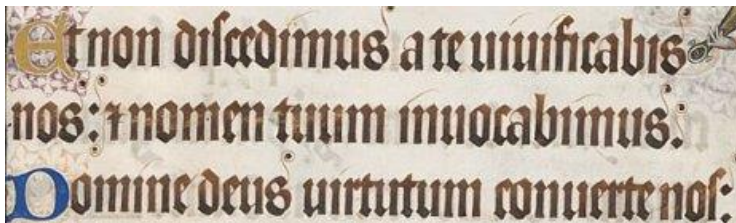 Et non discedimus a te uiuificabis
nos: ⁊ nomen tuum inuocabimus.
Domine deus uirtutum conuerte nos: